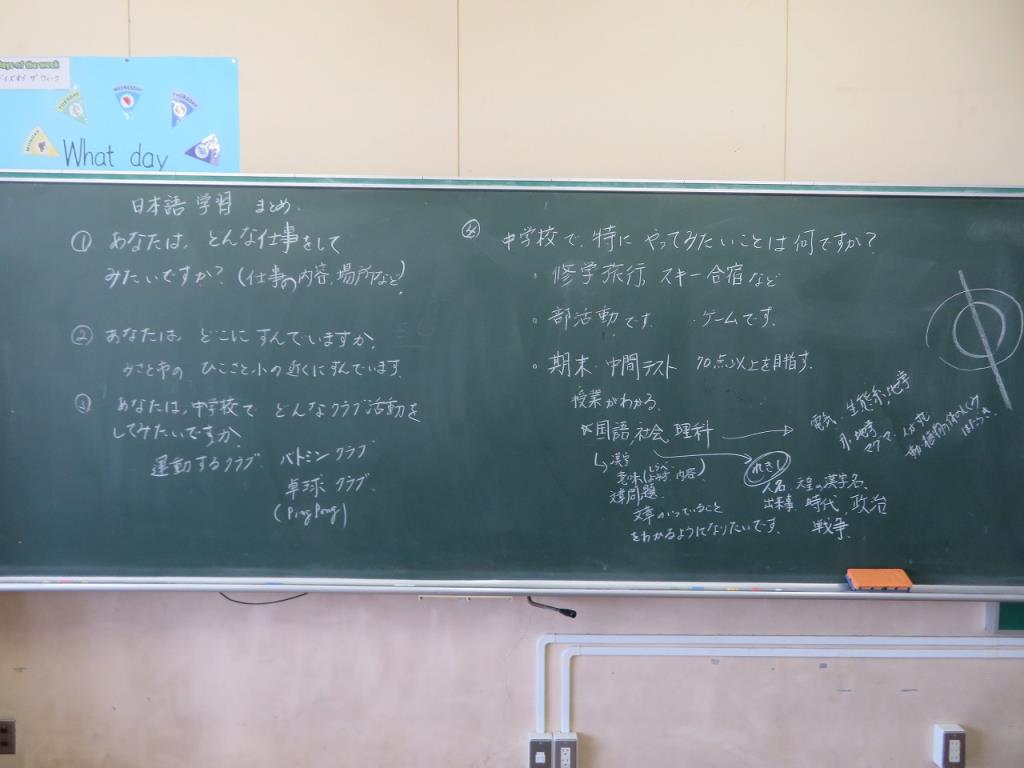 Days of the week
デイズ オブ ザ ウィーク
MONDAY
TUESDAY
WEDNESDAY
THURSDAY
What day
日本語 学習 まとめ.
① あなたは, どんな仕事をして
みたいですか? (仕事の内容, 場所など)
② あなたは, どこに すんでいますか.
ひこさと小の近くにすんでいます.
③ あなたは, 中学校で どんなクラブ活動を
してみたいですか
運動するクラブ バトミン クラブ
卓球 クラブ.
(PingPong)
④ 中学校で, 特に やってみたいことは何ですか?
・修学旅行, スキー合宿など
・部活動です. ・ゲームです.
・期末・中間テスト 70点以上を目指す.
授業がわかる.
国語, 社会, 理科
漢字
意味 内容)
文章のいっていること
をわかるようになりたいです.
れきし
人名 天皇の漢字名,
出来事, 時代, 政治
戦争.
電気, 生態系, 地学